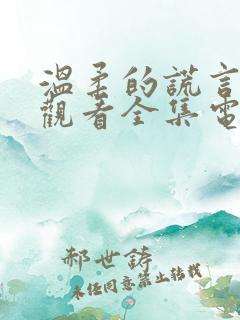 溫柔的謊言
觀看全集電
郝世鑄
未经同意禁止转载